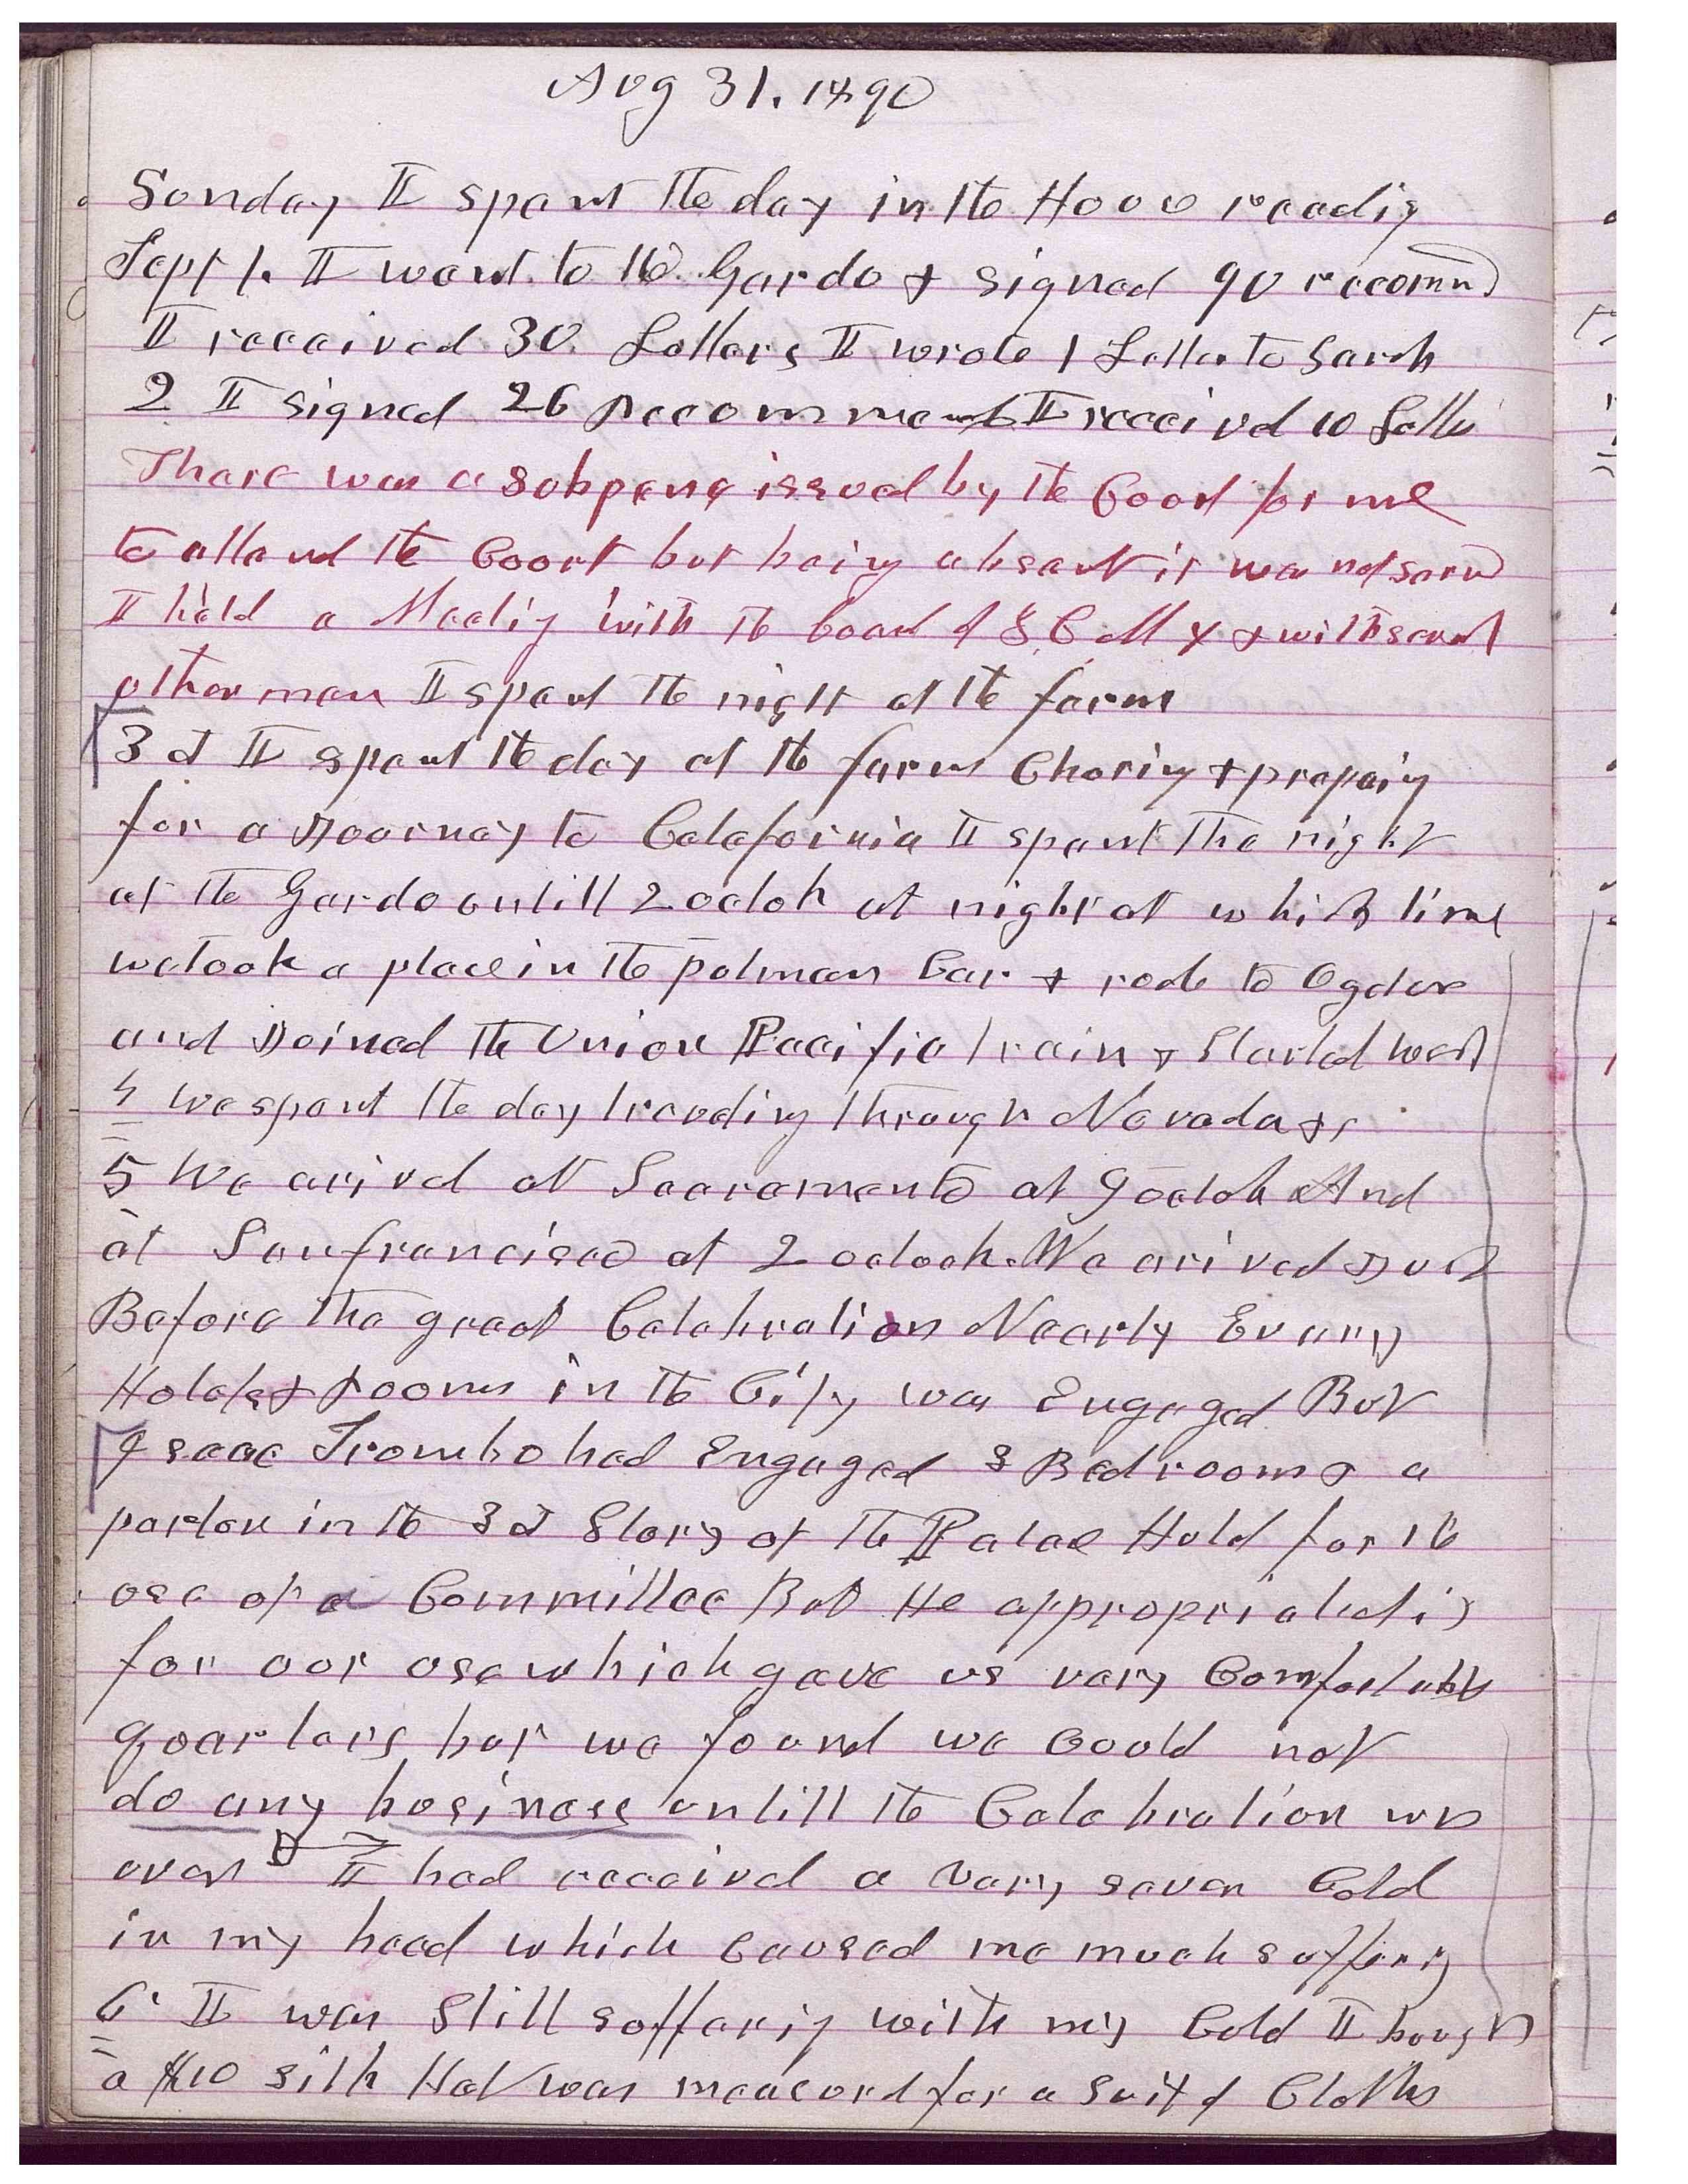 Aug 31. 1890
Sunday I spent the day in the House reading
Sept 1. I went to the Gardo & signed 90 recommd
I received 30 Letters I wrote 1 Letter to Sarah
2 I signed 26 Recommends I received 10 Lette
There was a subpena issued by the Court for me
to attend the Court but being absent it was not served
I held a Meeting with the board of Z C M I & with several
other men I spent the night at the farm
3d I spent the day at the farm Choring & prepaing
for a Journey to Calafornia I spent the night
at the Gardo untill 2 oclok at night at which time
we took a place in the pulman Car & rode to Ogden
and Joined the Union Pacific train & Started west
4 We spent the day traveling through Nevada &c
5 We arived at Sacramento at 9 oclok And
at Sanfrancisco at 2 oclock. We arived Just
Before the great Celebration Nearly Evry
Hotels & rooms in the City was Engaged But
Isaac Trombo had Engaged 3 Bedrooms & a
parlor in the 3d Story of the Palace Hotel for the
use of a Committee But He appropriated it
for our use which gave us very Comfortabl
quarters but we found we Could not
do any business untill the Celebration was
over I had received a very sever Cold
in my head which Caused me much suffering
6 I was Still suffering with my Cold I bought
a $10 silk Hat was meacured for a suit of Cloths